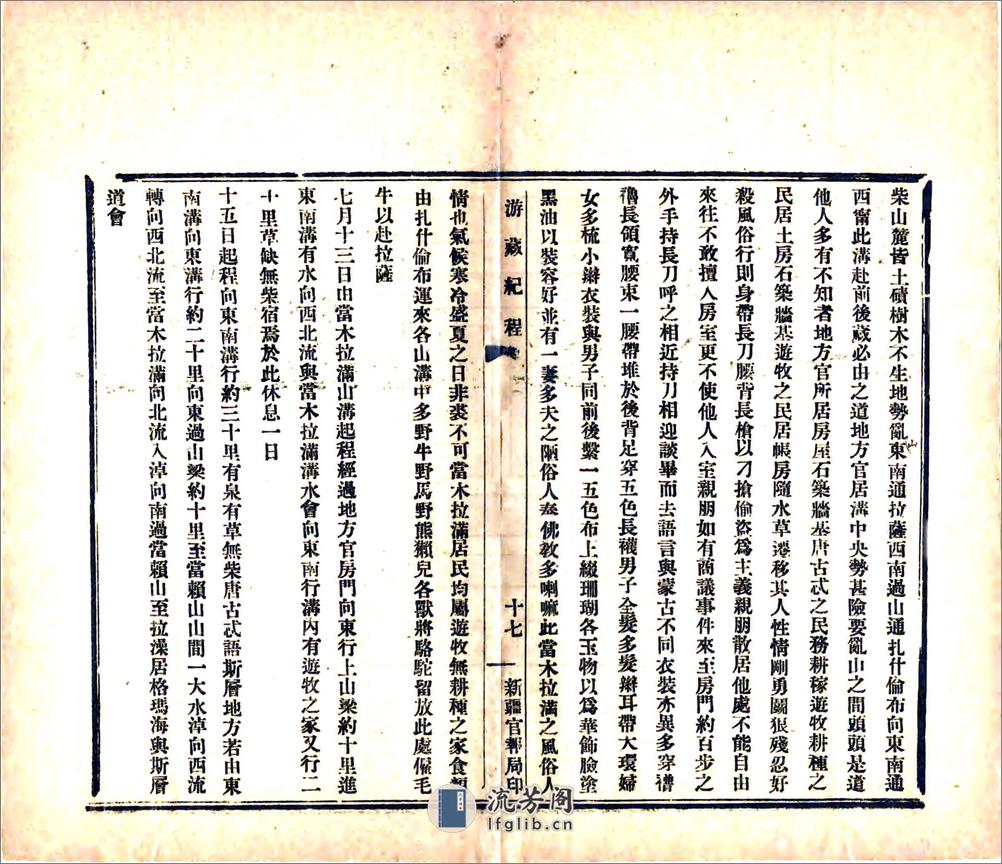 柴山麓皆土磧樹木不生地勢亂東南通拉薩西南過山通扎什倫布向東南通
山
西甯此溝赴前後藏必由之道地方官居溝中央勢甚險要亂山之間頭頭是道
他人多有不知者地方官所居房屋石築牆基唐古忒之民務耕稼遊牧耕種之
民居土房石築牆基遊牧之民居帳房隨水草遷移其人性情剛勇鬭狠殘忍好
殺風俗行則身帶長刀腰背長槍以刁搶偷盜為主義親朋散居他處不能自由
來往不敢擅入房室更不使他人入室親朋如有商議事件來至房門約百步之
外手持長刀呼之相近持刀相迎談畢而去語言與蒙古不同衣裝亦異多穿氆
氌長領寬腰束一腰帶堆於後背足穿五色長襪男子全髮多髮辮耳帶大環婦
女多梳小辮衣裝與男子同前後繫一五色布上綴珊瑚各玉物以為華飾臉塗
黑油以裝容好並有一妻多夫之陋俗人奉佛教多喇嘛此當木拉滿之風俗人
游藏紀程
十七
新疆官報局印
情也氣候寒冷盛夏之日非裘不可當木拉滿居民均屬遊牧無耕種之家食糧
由扎什倫布運來各山溝中多野牛野馬野熊獺兒各獸將駱駝留放此處僱毛
牛以赴拉薩
七月十三日由當木拉滿山溝起程經過地方官房門向東行上山梁約十里進
東南溝有水向西北流與當木拉滿溝水會向東南行溝內有遊牧之家又行二
十里草缺無柴宿焉於此休息一日
十五日起程向東南溝行約三十里有泉有草無柴唐古忒語斯層地方若由東
南溝向東溝行約二十里向東過山梁約十里至當賴山山間一大水淖向西流
轉向西北流至當木拉滿向北流入淖向南過當賴山至拉澡居格瑪海與斯層
道會
流芳阁
lfglib.cn